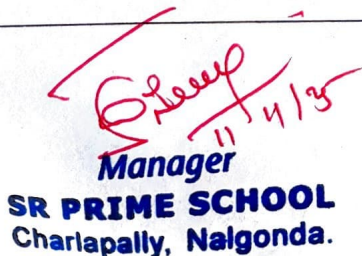 11/4/25
Manager
SR PRIME SCHOOL
Charlapally, Nalgonda.